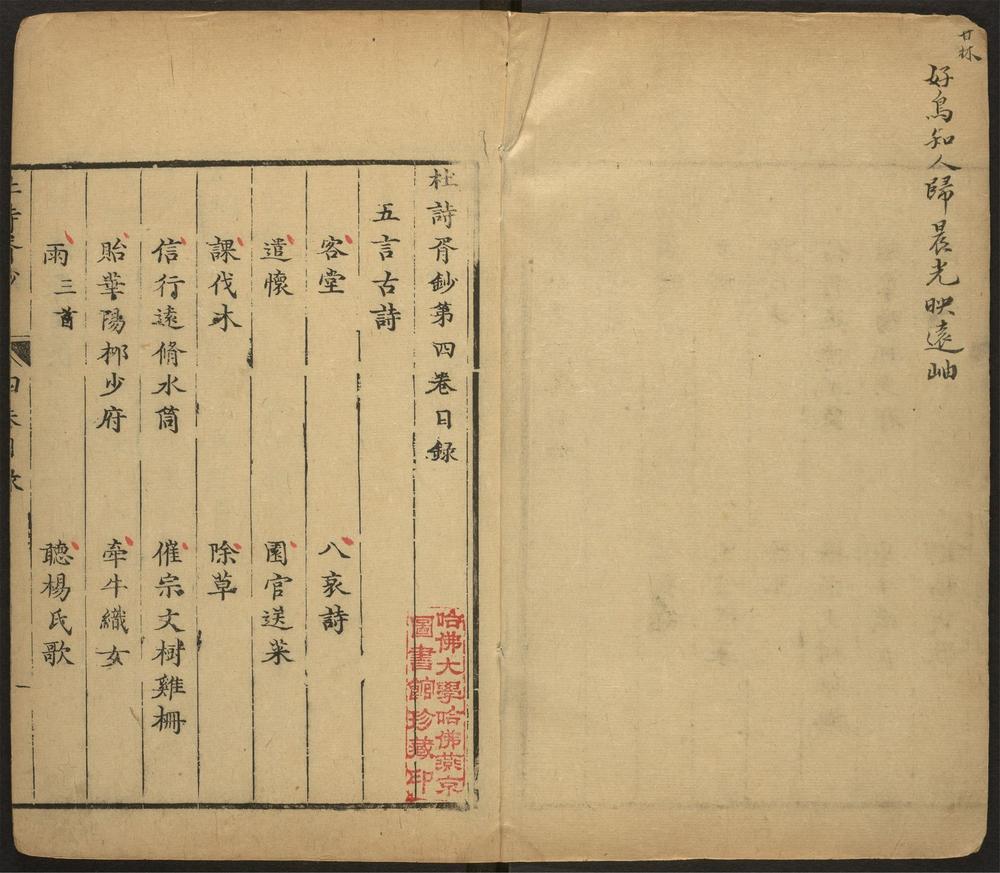 甘林
好鳥知人歸晨光映遠岫
杜詩胥鈔第四卷目録
五言古詩
客堂 八哀詩
遣懷 園官送菜
課伐木 除草
信行遠脩水筒 催宗文樹雞柵
貽華陽栁少府 牽牛織女
雨三首 聽楊氏歌
哈佛大學哈佛燕京
圖書館珍藏印